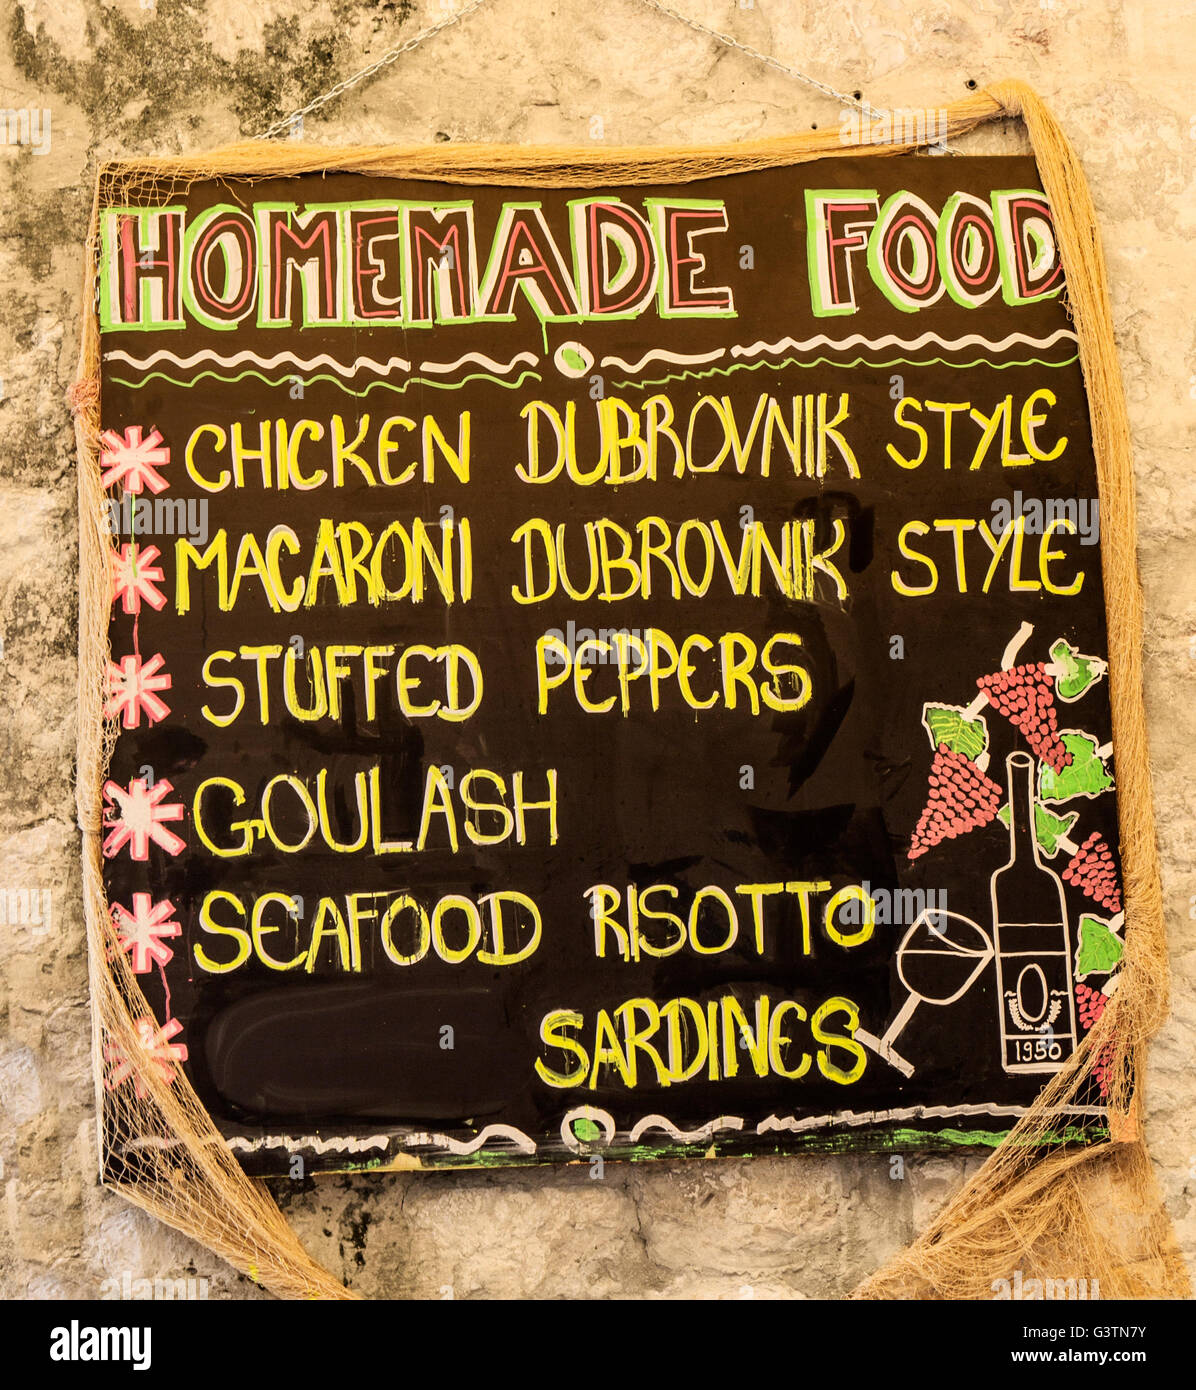 HOMEMADE FOOD
CHICKEN DUBROVNIK STYLE
MACARONI DUBROVNIK STYLE
STUFFED PEPPERS
GOULASH
SEAFOOD RISOTTO
SARDINES
1950
alamy
Image ID: G3TN7Y
www.alamy.com